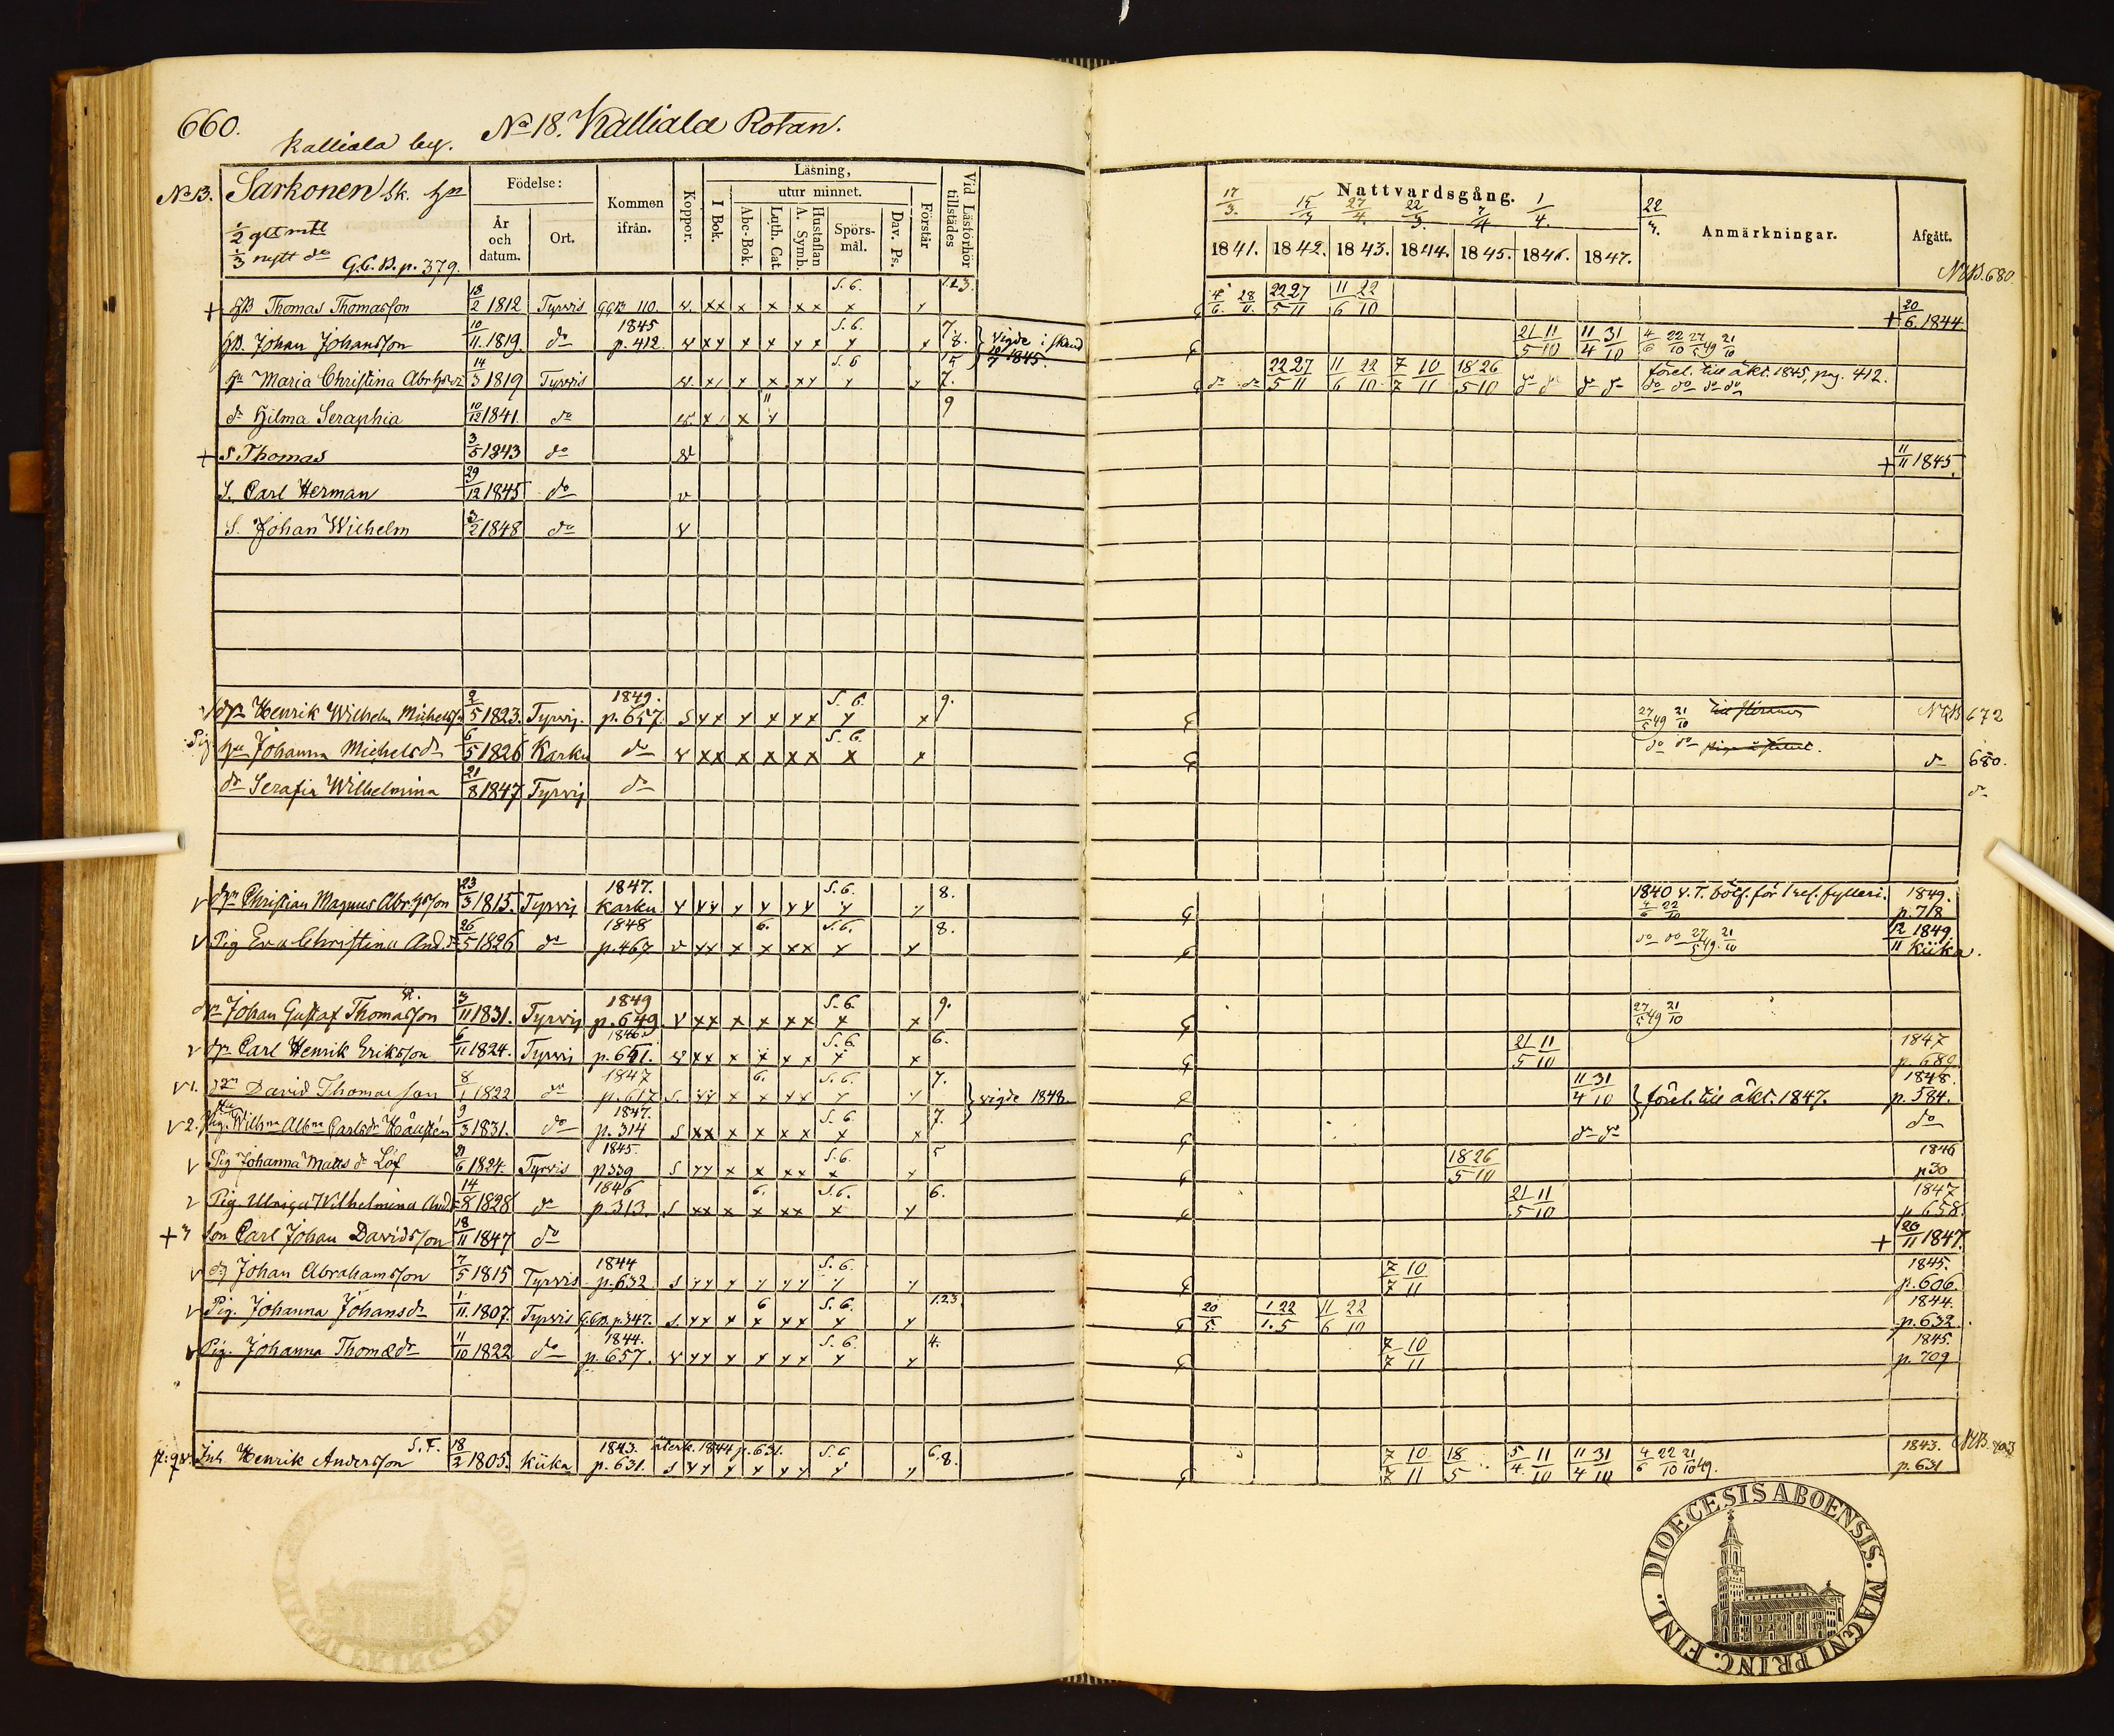 660.
No 18. Kalliala Rotan.
Kalliala by.
No 13. Sarkonen Sk. hn
1/2 glt mtl
1/3 nytt do G.C.B. p. 379.
Födelse:
År och datum.
Ort.
Kommen ifrån.
Koppor.
Läsning,
I Bok.
utur minnet.
Abc-Bok.
Luth. Cat.
Hustaflan A. Symb.
Spörs-mål.
Dav. Ps.
Förstår
Vid Läsförhör tillstädes
Nattvardsgång.
17/3. 15/3 27/4. 22/3. 7/4 1/4. 22/3.
1841. 1842. 1843. 1844. 1845. 1846. 1847.
Anmärkningar.
Afgått.
NCB. 680.
+ HB Thomas Thomasson 18/2 1812 Tyrvis GCB 110. v. xx x x xx S.6. x x 1.2.3. 4/6. 28/11. 22 27/5 11 11 22/6 10 + 20/6. 1844
HB. Johan Johansson 10/11. 1819. do 1845 p. 412. v xx x x xx S.6. x x 7. 8. } vigde i stånd 21 11/5 10 11 31/4 10 4/6 22/10 27/5 49 21/10
hu Maria Christina Abrhsdr 14/3 1819 Tyrvis v. xx x x xx S.6 x x 15/7. do do 22 27/5 11 11 22/6 10 7 10/7 11 18 26/5 10 do do do do förel. till äkt. 1845, pag. 412. do do do do
dr Hilma Seraphia 10/12 1841. do v. x x x 9
+ S Thomas 3/5 1843 do v + 11/11 1845.
S. Carl Herman 29/12 1845 do v
S. Johan Wilhelm 3/2 1848 do v
v drn Henrik Wilhelm Michelss 2/5 1823. Tyrvis. 1849. p. 657. S xx x x xx S.6. x x 9. 27/5 49 21/10 NCB 672
Pig. hu Johanna Michelsdr 6/5 1826 Karku do v xx x x xx S.6. x x do do do 680.
dr Serafia Wilhelmina 21/8 1847 Tyrvis do do
v drn Christian Magnus Abrhsson 23/3 1815. Tyrvis 1847. Karku v xx x x xx S.6. x x 8. 1840 v. T. böt. för 1 res. fylleri. 4/6 22/10 1849. p. 718
v Pig Eva Christina And.dr 26/5 1826 do 1848 p. 467 v xx x 6. x xx S.6. x x 8. do do 27/5 49. 21/10 12/11 1849. Kiika.
drn Johan Gustaf Thomasson 3/11 1831. Tyrvis 1849 p. 649 v xx x x xx S.6. x x 9. 27/5 49 21/10
v drn Carl Henrik Eriksson 6/11 1824. Tyrvis 1846. p. 651. v xx x x xx S.6. x x 6. 21 11/5 10 1847 p. 689
v 1. drn David Thomasson 8/1 1822 do 1847 p. 617 S. xx x 6. x xx S.6. x x 7. } vigde 1848. 11 31/4 10 } förel. till äkt. 1847. 1848. p. 584.
v 2. Pig. Wilhna Albna Carlsdr 9/3 1831. do 1847. p. 314 S xx x x xx S.6. x x 7. do do do
v Pig Johanna Matts dr Löf 21/6 1824. Tyrvis 1845. p 339 S xx x x xx S.6. x x 5 18 26/5 10 1846 p 30
v Pig. Ulrica Wilhelmina And.dr 14/8 1828 do 1846 p. 313. S xx x 6. x xx S.6. x x 6. 21 11/5 10 1847 p 658.
+ 3 Son Carl Johan Davidsson 18/11 1847 do + 20/11 1847.
v dr Johan Abrahamsson 7/5 1815 Tyrvis 1844 p. 632 S xx x x xx S.6. x x 7 10/7 11 1845. p. 606.
v Pig. Johanna Johansdr 1/11. 1807. Tyrvis G.C.B. p. 347. S xx x 6 x xx S.6. x x 1.2.3 20/5. 1 22/1. 5 11 22/6 10 1844. p. 632.
v Pig. Johanna Thomædr 11/10 1822 do 1844. p. 657. v xx x x xx S.6. x x 4. 7 10/7 11 1845. p. 709
Inh. Henrik Andersson S.F. 18/2 1805. Kiika 1843. p. 631. återk. 1844 p. 631. S xx x x xx S.6 x x 6. 8. 7 10/7 11 18/5 5/4 11/10 11 31/4 10 4/6 22/10 21/10 49. 1843. p. 631 NCB.
DIOECESIS ABOENSIS. MAGNI PRINC. FINL.